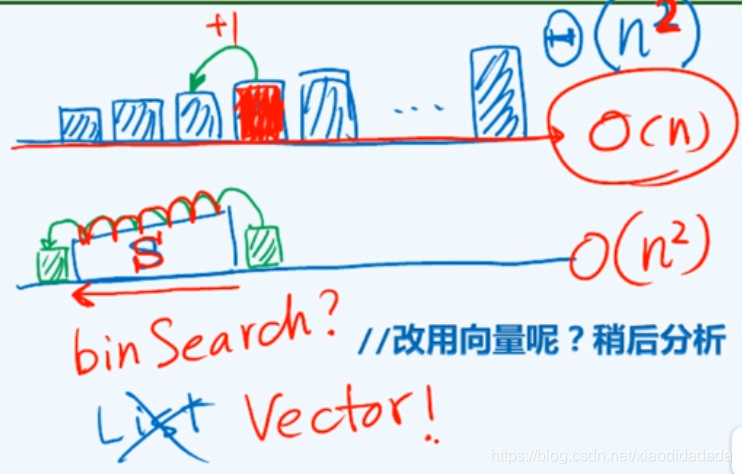 +1
Θ(n²)
...
O(n)
S
O(n²)
binSearch?
//改用向量呢？稍后分析
List Vector!
https://blog.csdn.net/xiaodidadada